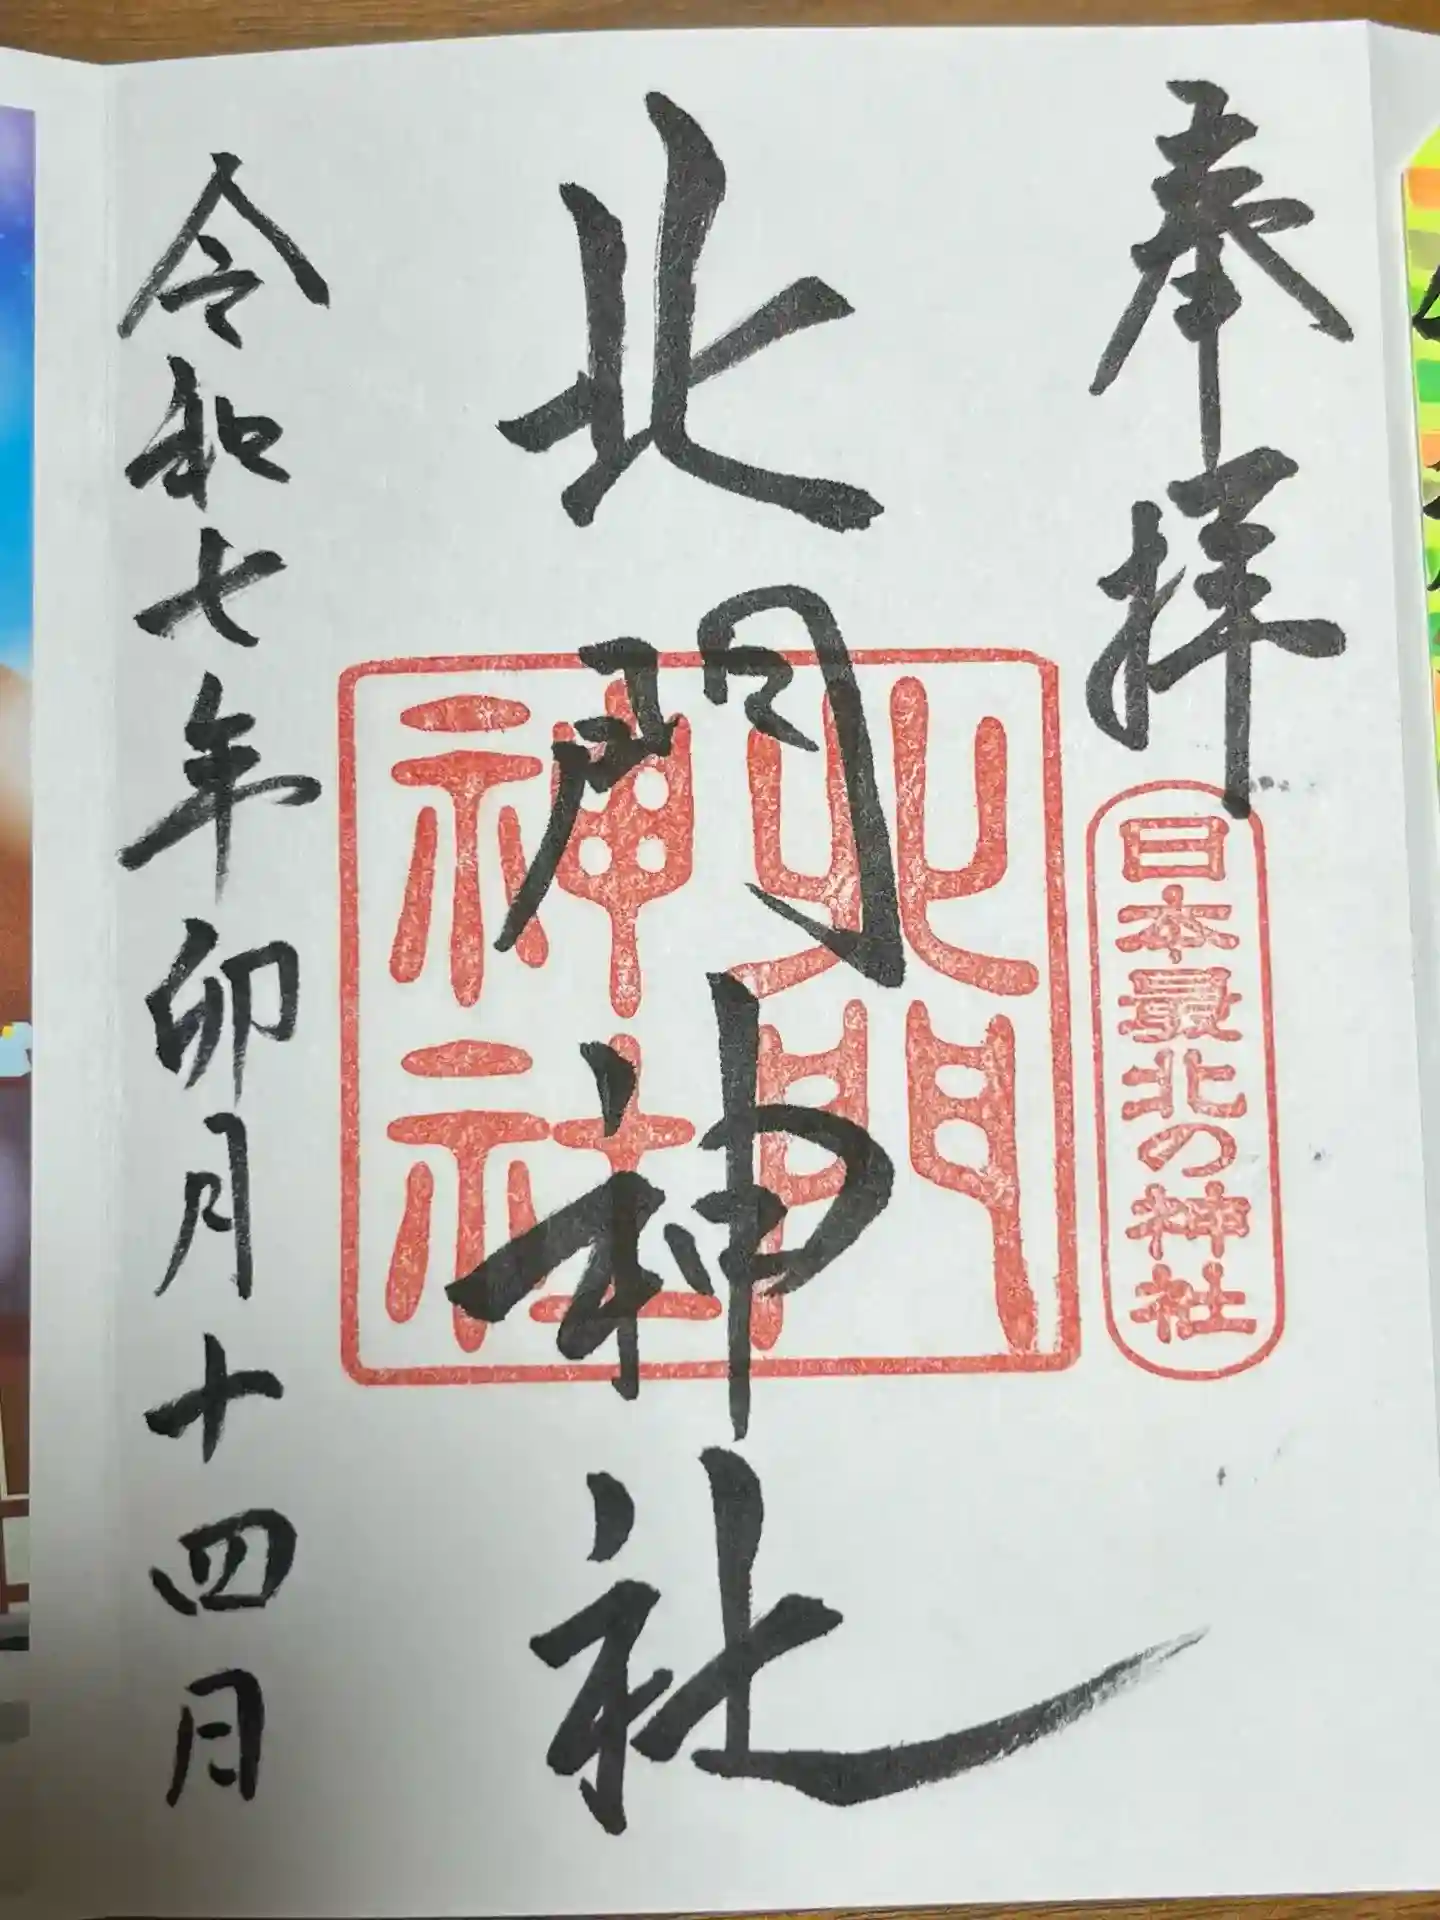 奉拝
日本最北の神社
北門神社
北門
神社
令和七年卯月十四日